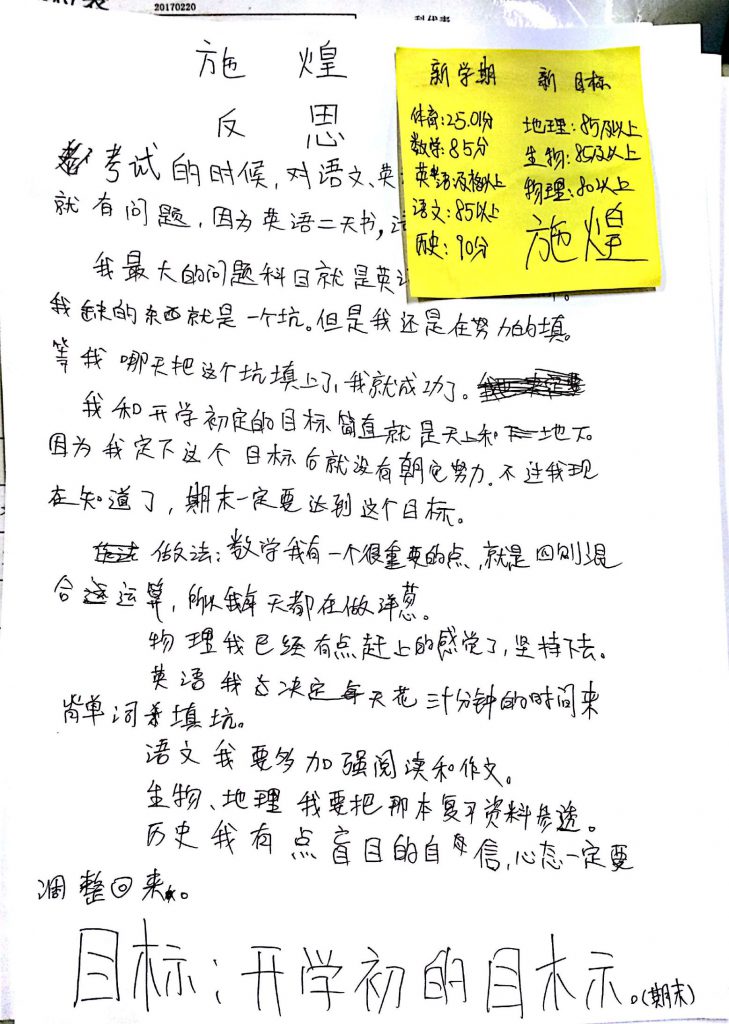 20170220
科代表
施 煌
反 思
考试的时候,对语文、英
就有问题,因为英语二天书,
我最大的问题科目就是英
我缺的东西就是一个坑。但是我还是在努力的填。
等我哪天把这个坑填上了,我就成功了。
我和开学初定的目标简直就是天上和地下。
因为我定下这个目标后就没有朝它努力。不过我现
在知道了,期末一定要达到这个目标。
做法:数学我有一个很重要的点,就是四则混
合运算,所以我每天都在做洋葱。
物理我已经有点赶上的感觉了,坚持下去。
英语我决定每天花三十分钟的时间来
背单词填坑。
语文我要多加强阅读和作文。
生物、地理我要把那本复习资料参透。
历史我有点盲目的自信,心态一定要
调整回来。
目标:开学初的目标。(期末)
新学期 新目标
体育:25.01分
数学:85分
英语:及格以上
语文:85以上
历史:90分
地理:85及以上
生物:85及以上
物理:80以上
施煌